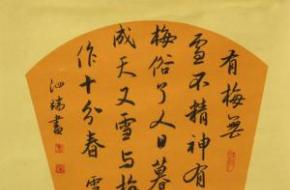 有梅無
雪不精神有
梅俗了人日暮
成天又雪与梅
作十分春 雪
泗瑞書